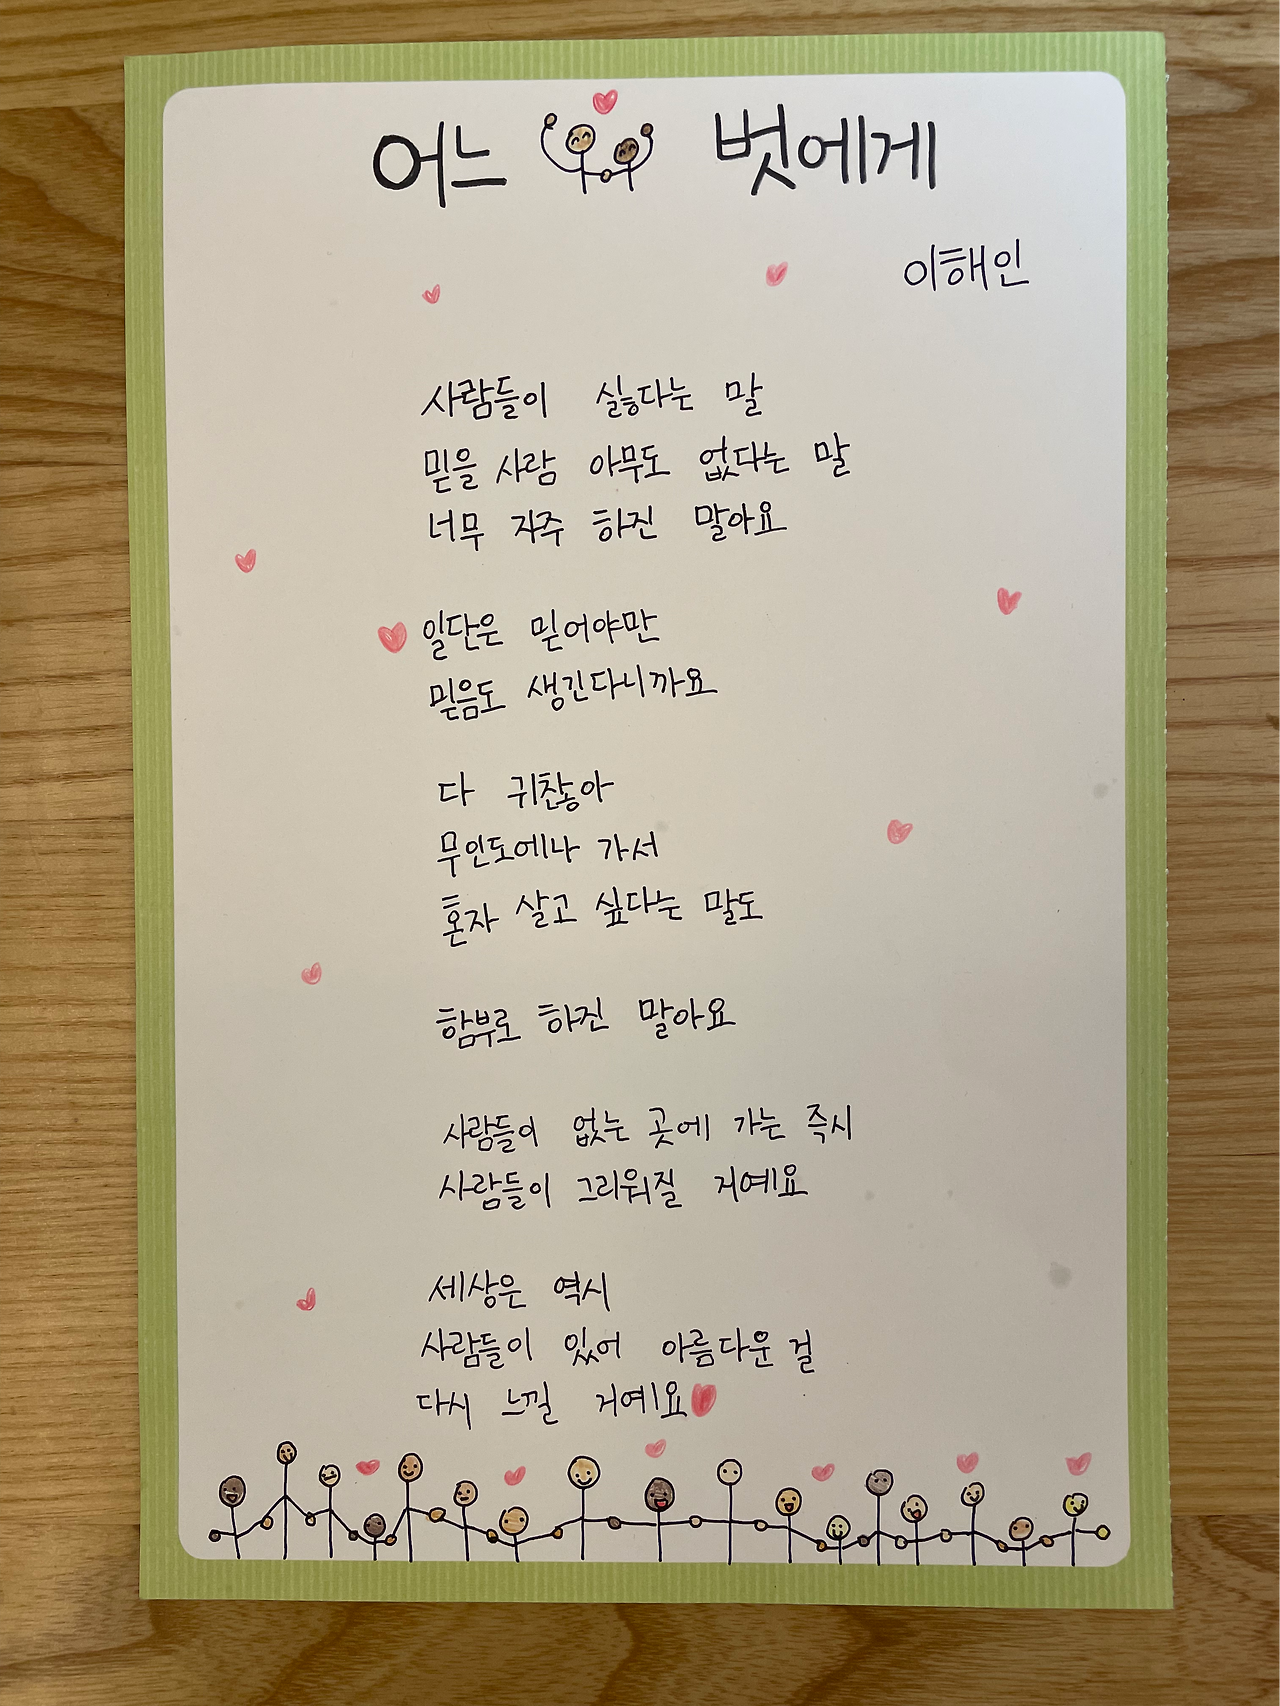 어느 벗에게
이해인
사람들이 싫다는 말
믿을 사람 아무도 없다는 말
너무 자주 하진 말아요
일단은 믿어야만
믿음도 생긴다니까요
다 귀찮아
무인도에나 가서
혼자 살고 싶다는 말도
함부로 하진 말아요
사람들이 없는 곳에 가는 즉시
사람들이 그리워질 거예요
세상은 역시
사람들이 있어 아름다운 걸
다시 느낄 거예요